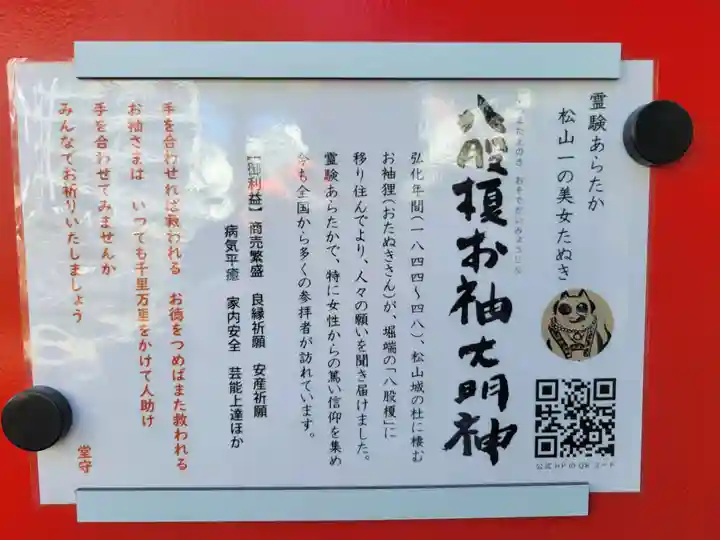 霊験あらたか
松山一の美女たぬき
八股榎お袖大明神
やつまたえのき おそでだいみょうじん
弘化年間(一八四四～四八)、松山城の杜に棲む
お袖狸(おたぬきさん)が、堀端の「八股榎」に
移り住んでより、人々の願いを聞き届けました。
霊験あらたかで、特に女性からの篤い信仰を集め
今も全国から多くの参拝者が訪れています。
【御利益】商売繁盛 良縁祈願 安産祈願
病気平癒 家内安全 芸能上達ほか
手を合わせれば救われる お徳をつめばまた救われる
お袖さまは いつても千里万里をかけて人助け
手を合わせてみませんか
みんなでお祈りいたしましょう
堂守
公式HPのQRコード